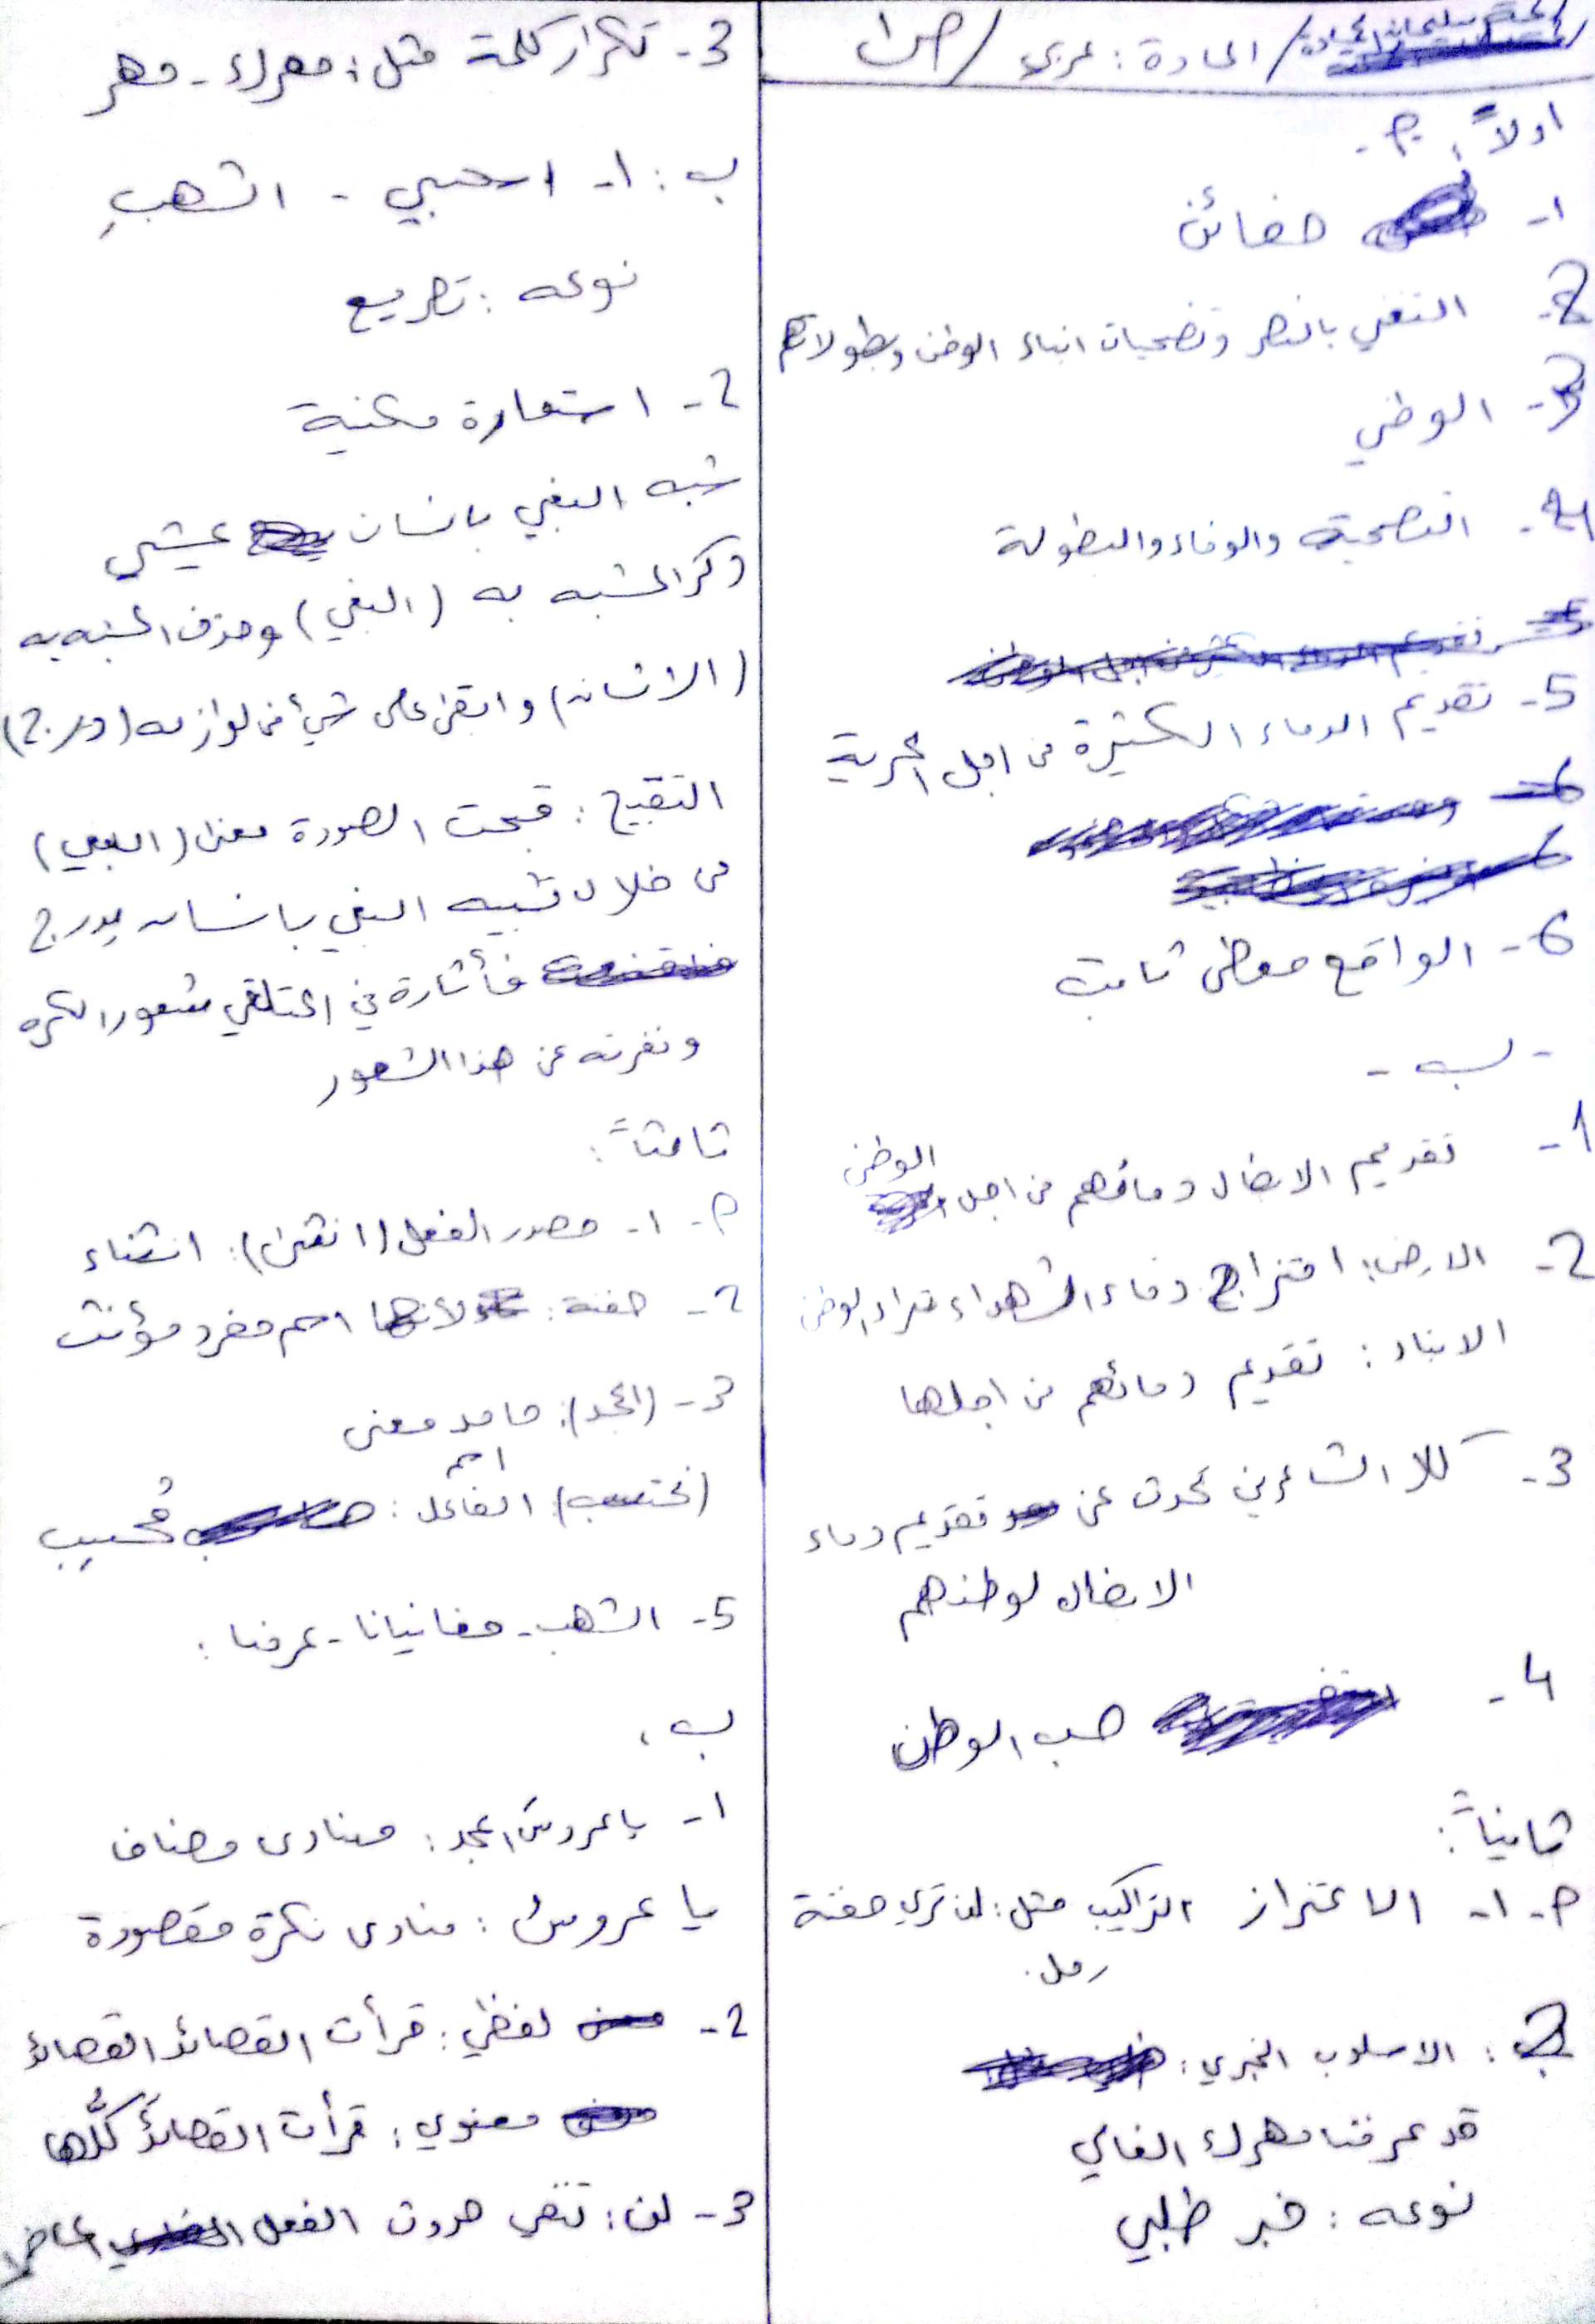 المادة : عربي / ص١
اولاً : م -
١- ضغائن
2- التغني بالنصر وتضحيات ابناء الوطن وبطولاتهم
3- الوطني
4- التضحية والوفاء والبطولة
5- تقديم الدماء الكثيرة من اجل الحرية
6- الواقع معطى ثابت
- ب -
1- تقديم الابطال دمائهم من اجل الوطن
2- الارض: امتزاج دماء الشهداء تراب الوطن
الابناء : تقديم دمائهم من اجلها
3- كلا الشاعرين تحدث عن تقديم دماء
الابطال لوطنهم
4- حب الوطن
ثانياً :
م- ١- الاعتزاز التراكيب مثل : لن تري حفنة
رمل .
2 : الاسلوب الخبري :
قد عرفنا مهرك الغالي
نوعه : خبر طلبي
3- تكرار كلمة مثل : مهرك - مهر
ب : ١- اسحبي - الشهبِ
نوعه : تصريع
2- استعارة مكنية
شبه البغي بانسان يمشي
ذكر المشبه به (البغي) وحذف المشبه به
(الانسان) وابقى على شيأ من لوازمه (درج)
التقبيح : قبحت الصورة معنى (البغي)
من خلال تشبيه البغي بانسان يدرج
فأثارة في المتلقي شعور الكره
ونفرته عن هذا الشعور
ثالثاً :
م- ١- مصدر الفعل (انثنى): انثناء
2- حفنة : لأنها اسم مفرد مؤنث
3- (المجد): جامد معنى
(نحتسب): اسم الفاعل : مُحسِب
5- الشهب - مغانيانا - عرفنا :
ب :
١- يا عروسَ المجد : منادى مضاف
يا عروسُ : منادى نكرة مقصودة
2- لفظي : قرأت القصائد القصائد
معنوي : قرأت القصائدَ كلَّها
3- لن : تنفي حدوث الفعل